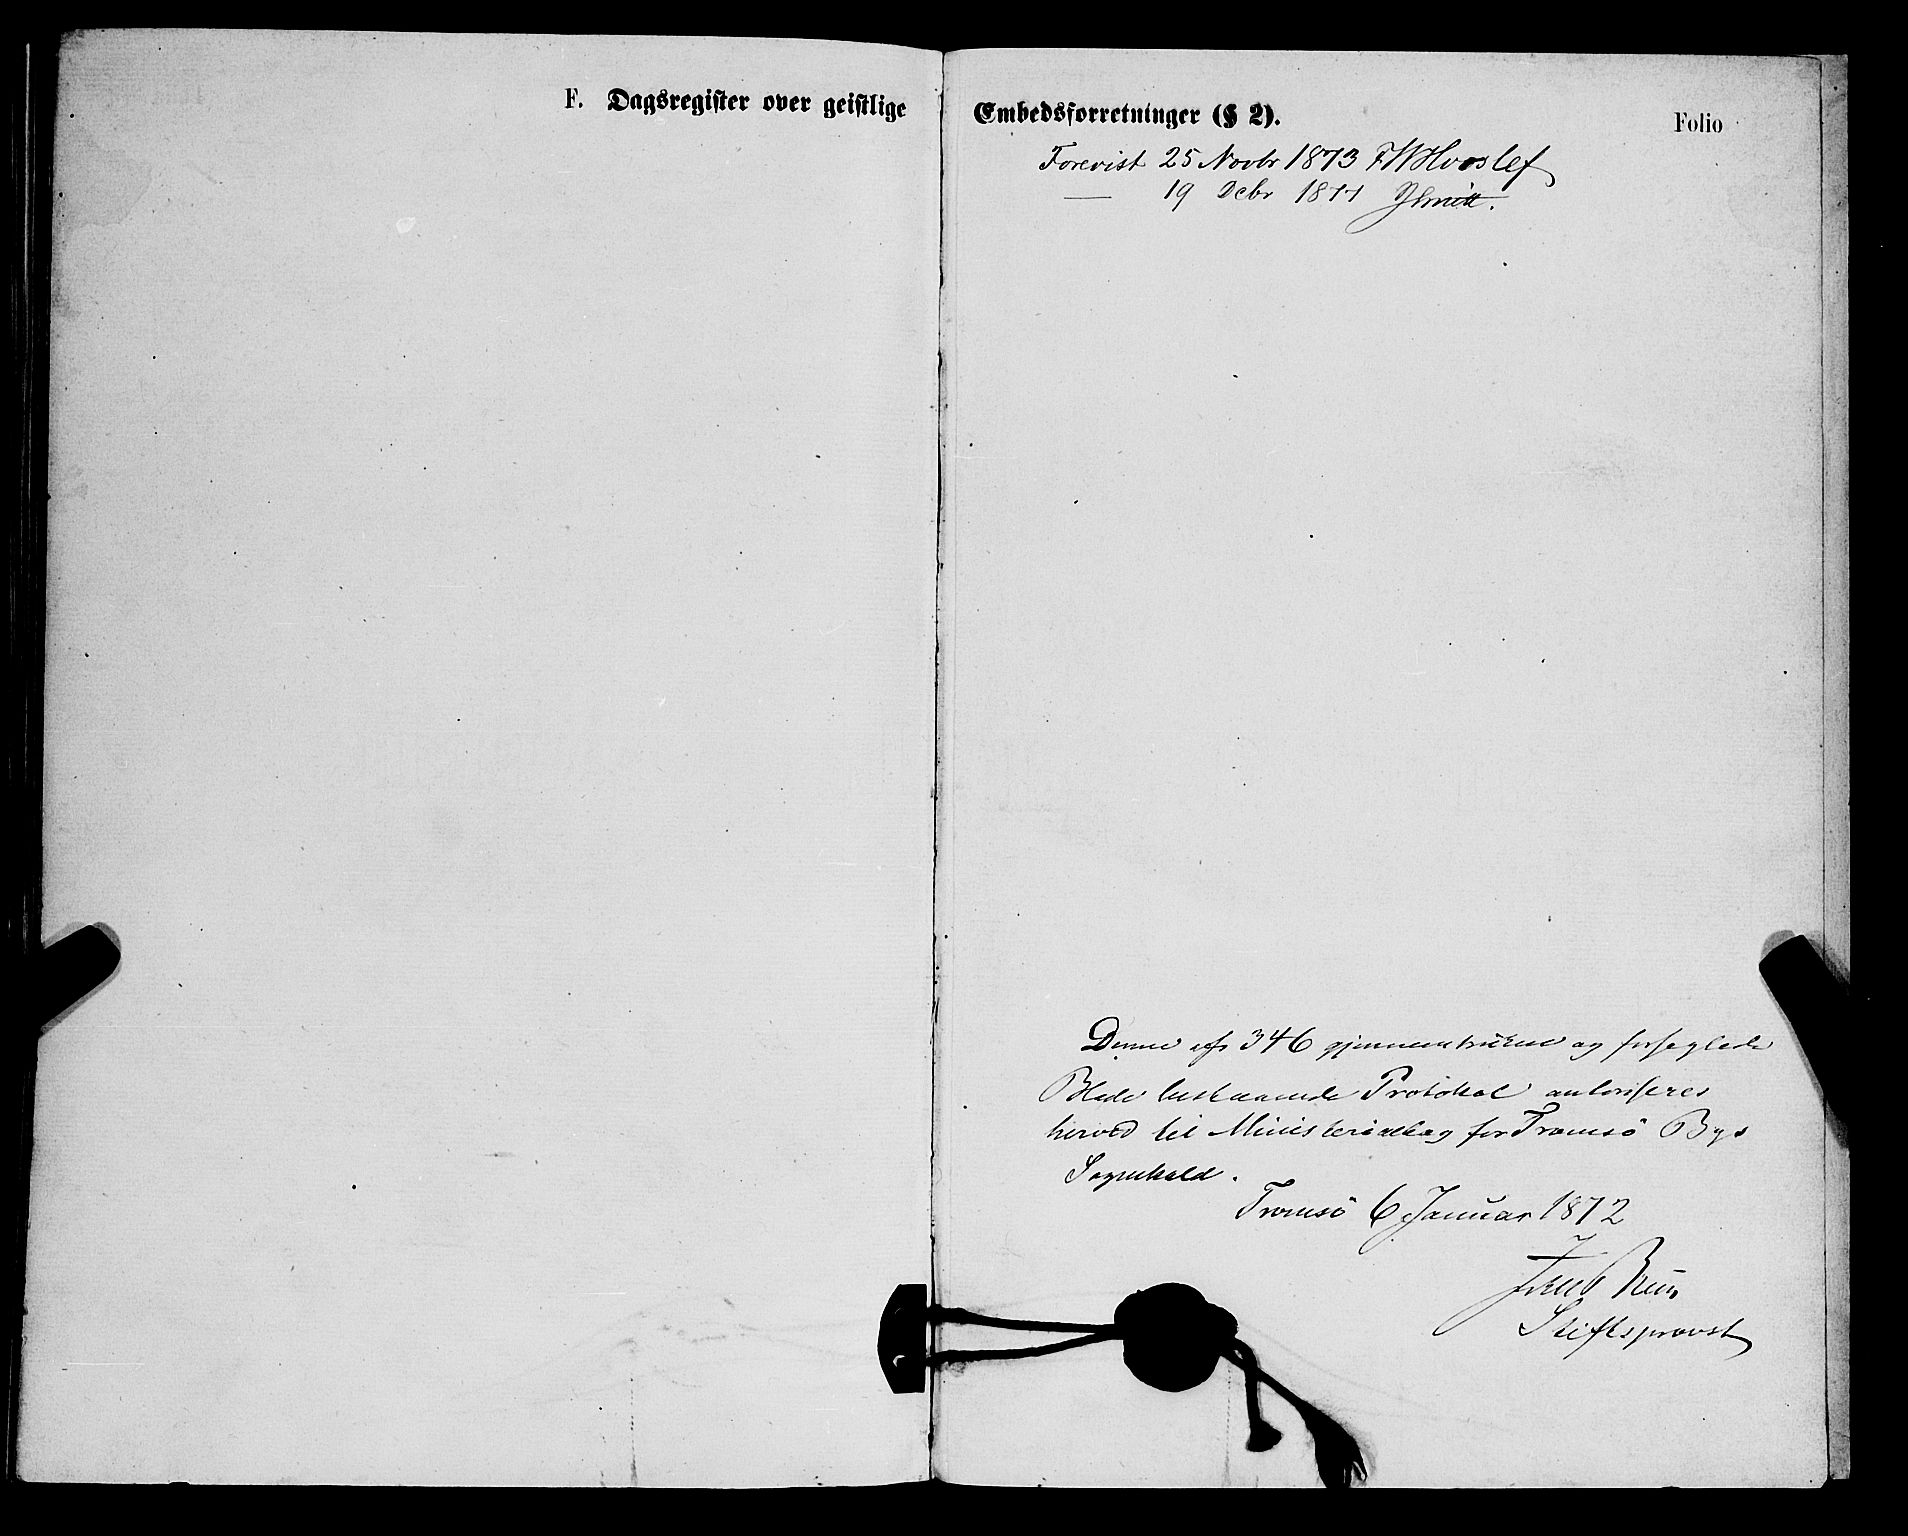 F. Dagsregister over geistlige Embedsforretninger (§ 2).
Folio
Forevist 25 Novbr 1873 FWHvoslef
— 19 Decbr 1877 JSmitt.
Denne af 346 gjennemtrukne og forseglede
Blade bestaaende Protokol autoriseres
herved til Ministerialbog for Tromsö Bys
Sognekald.
Tromsö 6 Januar 1872
Bruun
Stiftsprovst